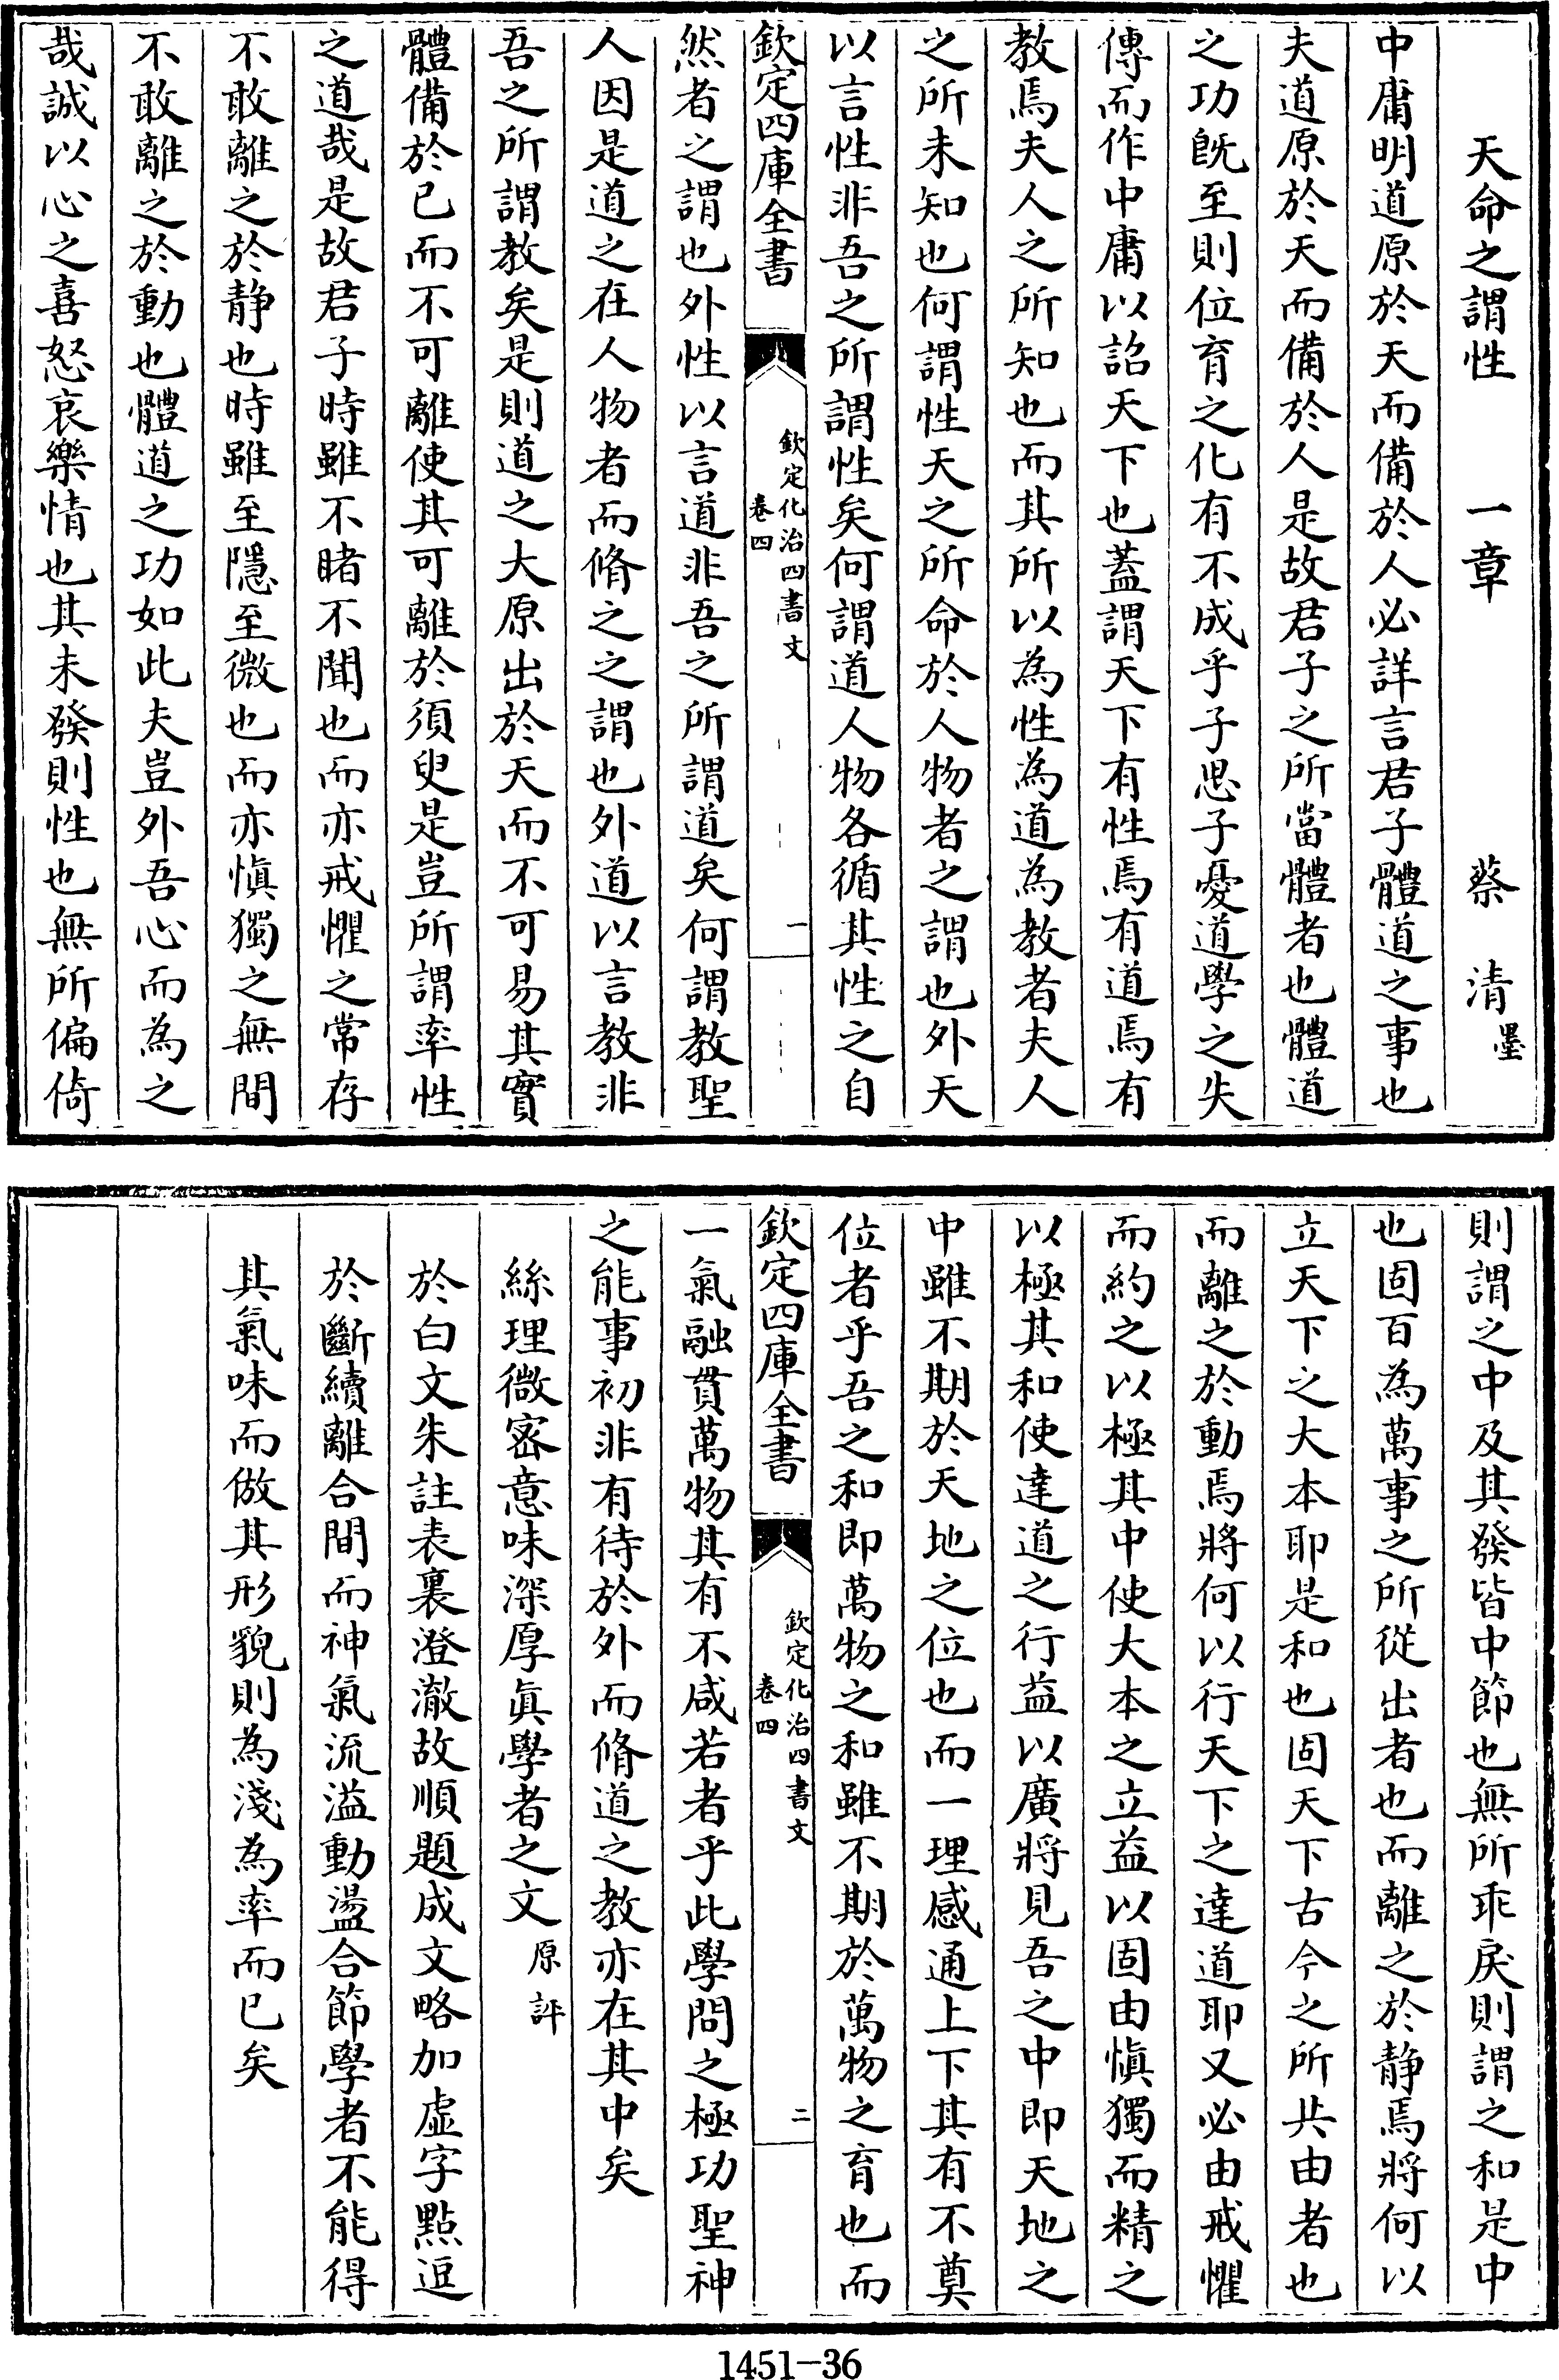 天命之謂性　一章　蔡　清墨
中庸明道原於天而備於人必詳言君子體道之事也
夫道原於天而備於人是故君子之所當體者也體道
之功旣至則位育之化有不成乎子思子憂道學之失
傳而作中庸以詔天下也蓋謂天下有性焉有道焉有
教焉夫人之所知也而其所以為性為道為教者夫人
之所未知也何謂性天之所命於人物者之謂也外天
以言性非吾之所謂性矣何謂道人物各循其性之自
欽定四庫全書
欽定化治四書文
卷四
一
然者之謂也外性以言道非吾之所謂道矣何謂教聖
人因是道之在人物者而脩之之謂也外道以言教非
吾之所謂教矣是則道之大原出於天而不可易其實
體備於已而不可離使其可離於須臾是豈所謂率性
之道哉是故君子時雖不睹不聞也而亦戒懼之常存
不敢離之於静也時雖至隱至微也而亦慎獨之無間
不敢離之於動也體道之功如此夫豈外吾心而為之
哉誠以心之喜怒哀樂情也其未發則性也無所偏倚
則謂之中及其發皆中節也無所乖戾則謂之和是中
也固百為萬事之所從出者也而離之於静焉將何以
立天下之大本耶是和也固天下古今之所共由者也
而離之於動焉將何以行天下之達道耶又必由戒懼
而約之以極其中使大本之立益以固由慎獨而精之
以極其和使達道之行益以廣將見吾之中即天地之
中雖不期於天地之位也而一理感通上下其有不奠
位者乎吾之和即萬物之和雖不期於萬物之育也而
欽定四庫全書
欽定化治四書文
卷四
二
一氣融貫萬物其有不咸若者乎此學問之極功聖神
之能事初非有待於外而脩道之教亦在其中矣
絲理微密意味深厚眞學者之文原評
於白文朱註表裏澄澈故順題成文略加虛字點逗
於斷續離合間而神氣流溢動盪合節學者不能得
其氣味而倣其形貌則為淺為率而已矣
1451-36